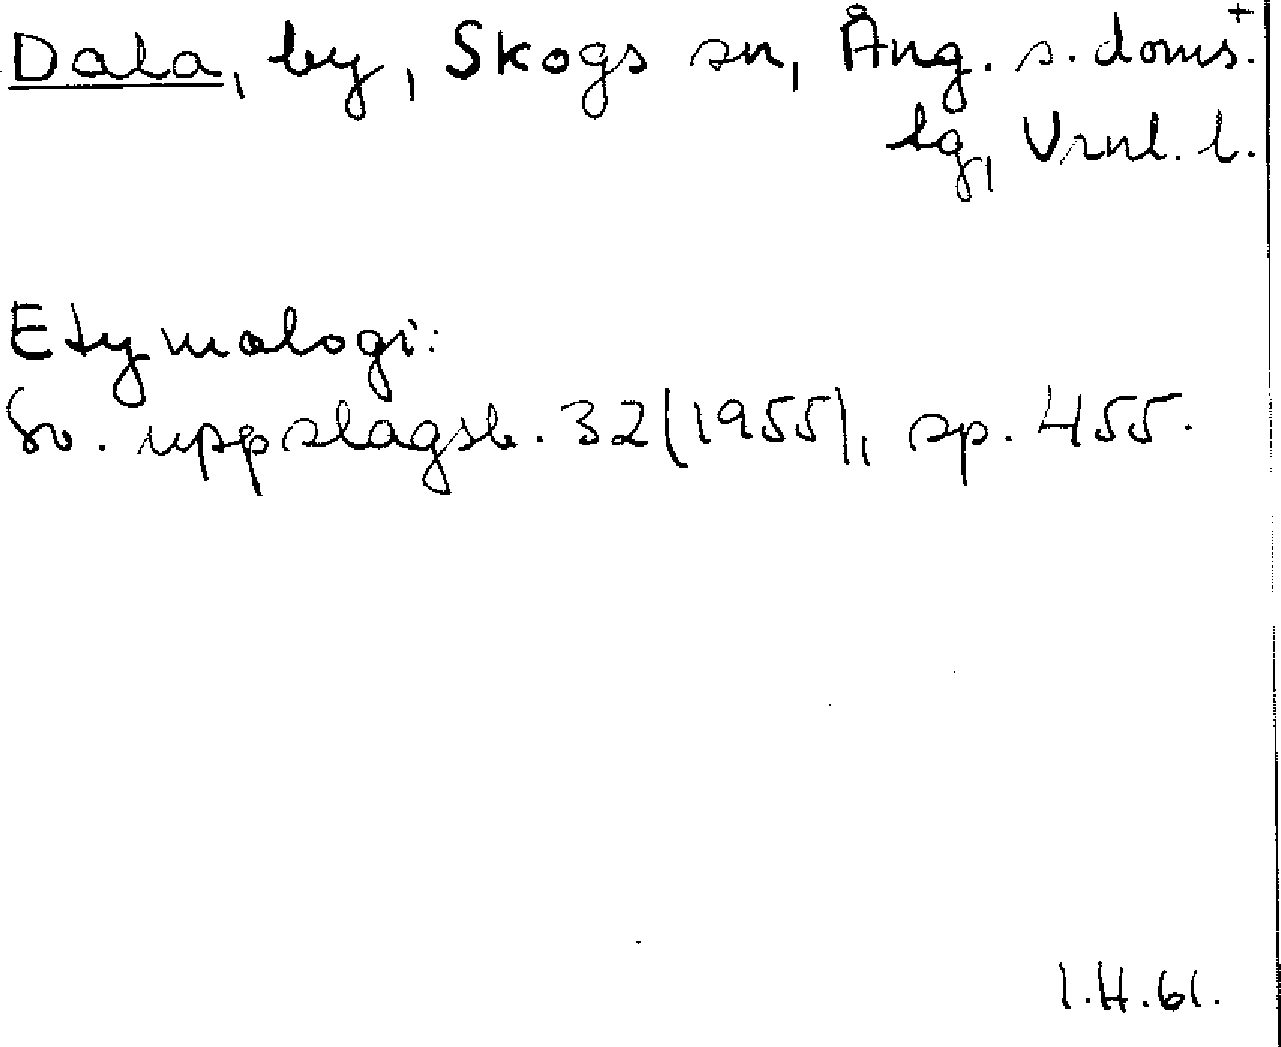 Dala, by, Skogs sn, Ång. s. doms. +
sg, Vrnl. l.
Etymologi:
Sv. uppslagsb. 32 (1955), sp. 455.
I.H.61.